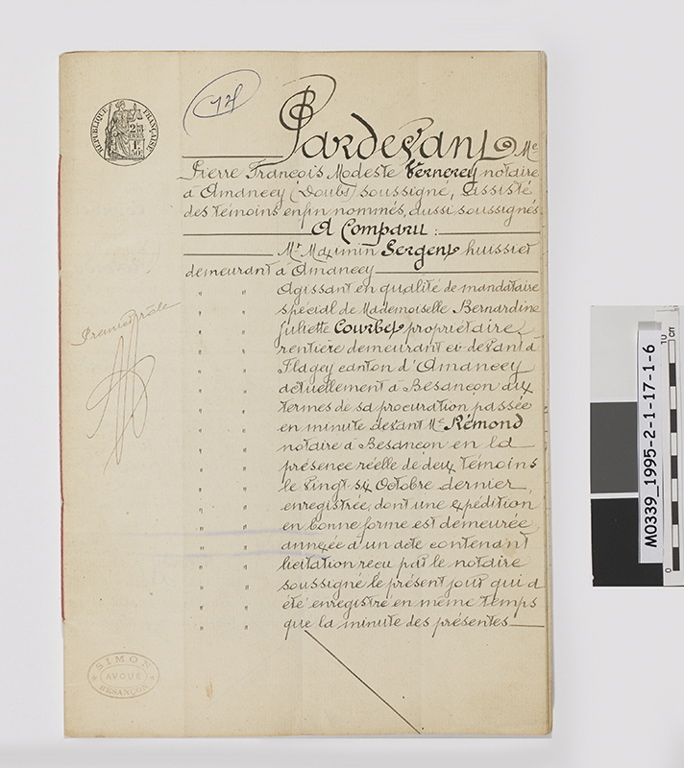 RÉPUBLIQUE FRANÇAISE
Pardevant Me
Pierre François Modeste Vernerey notaire
à Amancey (Doubs) soussigné, assisté
des témoins enfin nommés, aussi soussignés
A Comparu :
Mr Maximin Sergent huissier
demeurant à Amancey
Agissant en qualité de mandataire
spécial de Mademoiselle Bernardine
Juliette Courbet propriétaire
rentière demeurant ci-devant à
Flagey canton d'Amancey
actuellement à Besançon aux
termes de sa procuration passée
en minute devant Me Rémond
notaire à Besançon en la
présence réelle de deux témoins
le vingt six Octobre dernier
enregistrée, dont une expédition
en bonne forme est demeurée
annexée à un acte contenant
licitation reçu par le notaire
soussigné le présent jour qui a
été enregistré en même temps
que la minute des présentes
SIMON
AVOUÉ
BESANÇON
M0339_1995-2-1-17-1-6
0
CM